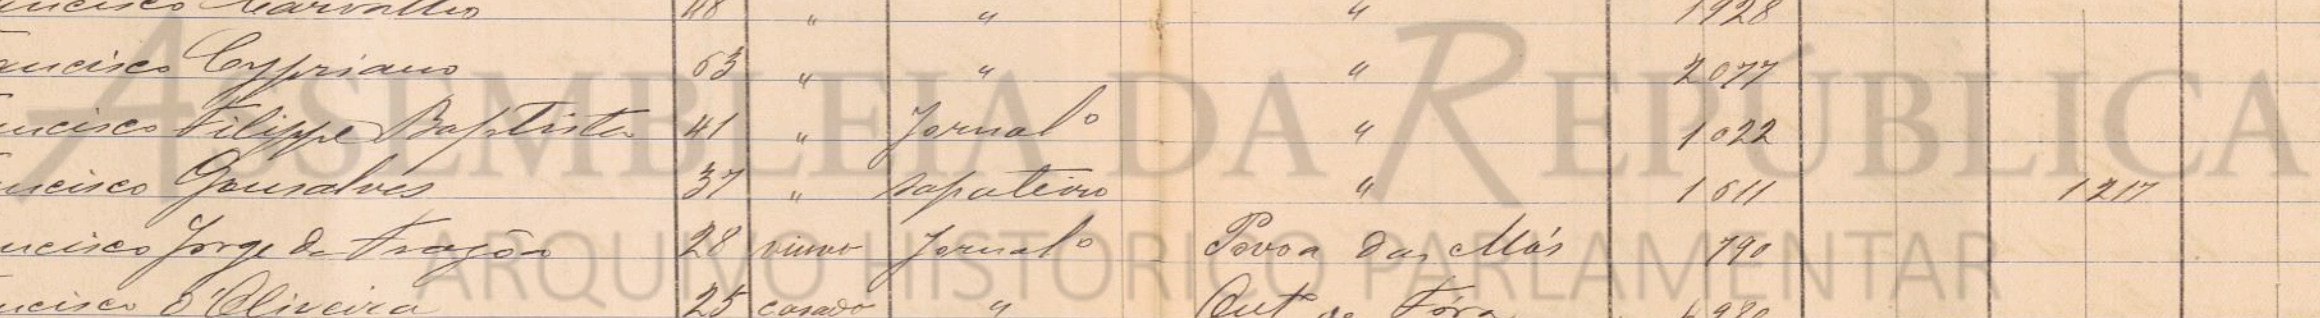 ncisco Carvalho 48 " " " 1928
ancisco Cypriano 63 " " " 2077
ncisco Filippe Baptista 41 " Jornalº " 1022
ncisco Gonsalves 37 " sapateiro " 1611 1217
ncisco Jorge da 28 viuvo Jornalº Povoa das Mós 790
ncisco d'Oliveira 25 casado " de Fóra
ASSEMBLEIA DA REPÚBLICA
ARQUIVO HISTÓRICO PARLAMENTAR